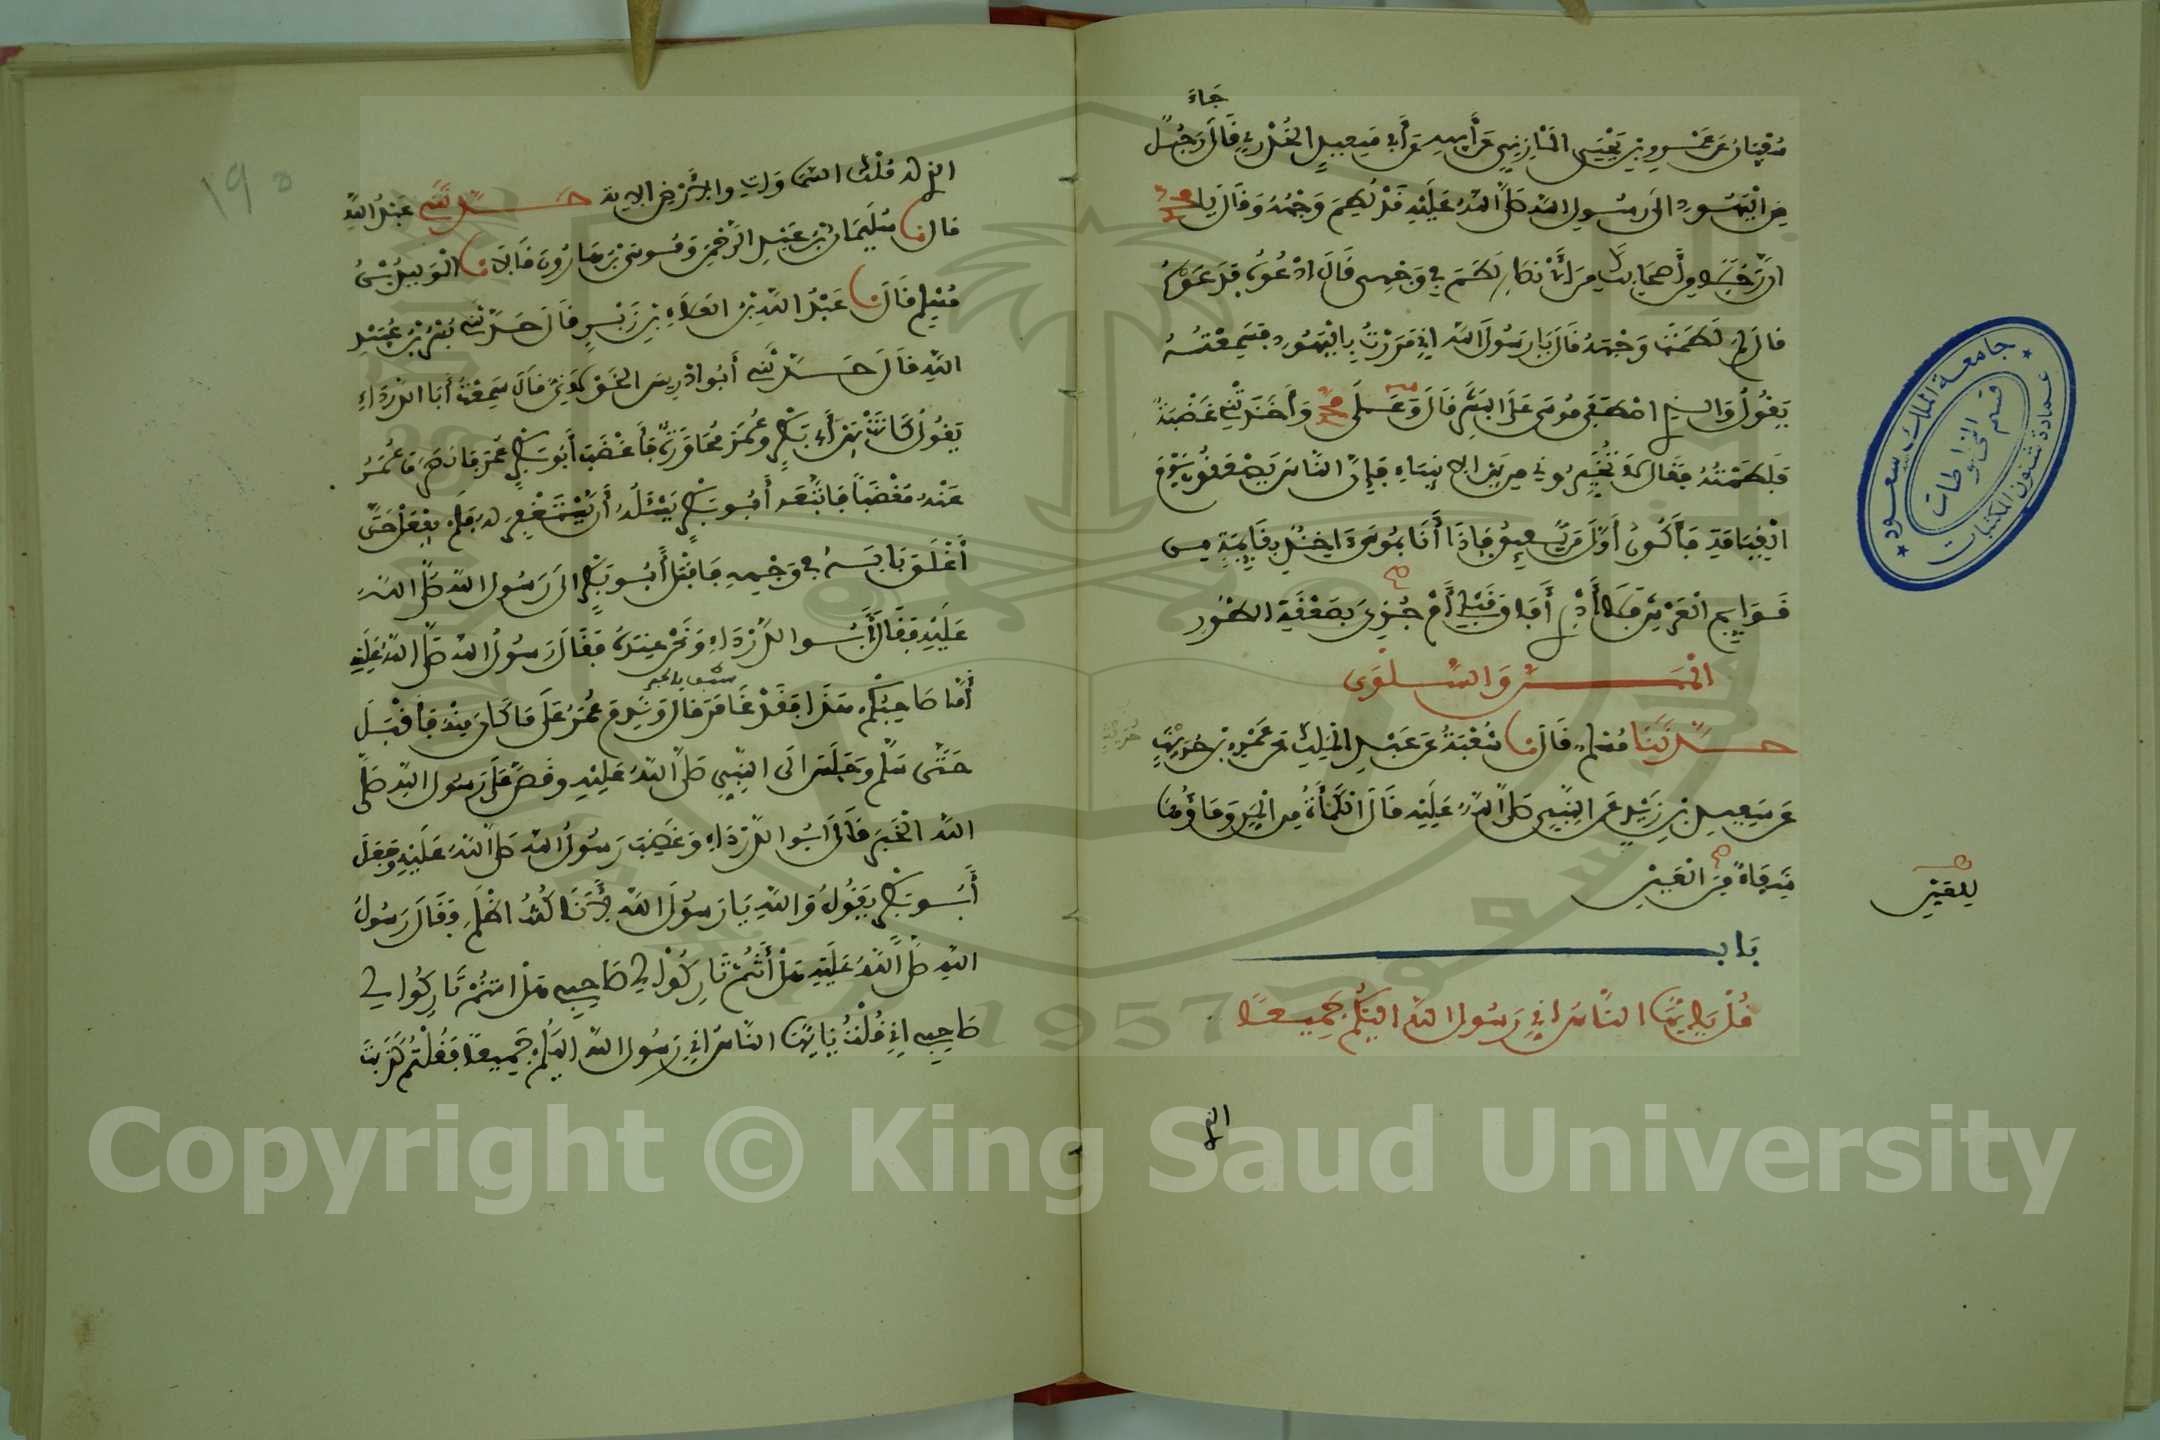 جَاءَ
سُفْيَانُ عَن عَمْرِو بْنِ يَحْيَى الْمَازِنِيِّ عَن أَبِيهِ عَن أَبِي سَعِيدٍ الْخُدْرِيِّ قَالَ رَجُلٌ
مِنَ الْيَهُودِ إلى رَسُولِ اللهِ صَلَّى اللهُ عَلَيْهِ قَدْ لُطِمَ وَجْهُهُ وَقَالَ يَا محمد
إنَّ رَجُلًا مِنْ أَصْحَابِكَ مِنَ الْأَنْصَارِ لَطَمَ فِي وَجْهِي قَالَ ادْعُوهُ فَدَعَوْهُ
قال لِمَ لَطَمْتَ وَجْهَهُ قَالَ يَا رَسُولَ اللهِ إنِّي مَرَرْتُ بِالْيَهُودِ فَسَمِعْتُهُ
يَقُولُ وَالذِي اصْطَفَى مُوسَى عَلَى الْبَشَرِ قَالَ وَعَلَى محمد وَأَخَذَتْنِي غَضْبَةٌ
فَلَطَمْتُهُ فَقَالَ لَا تُخَيِّرُونِي مِن بَيْنِ الانبِيَاءِ فَإِنَّ النَّاسَ يَصْعَقُونَ يَوْمَ
الْقِيَامَةِ فَأَكُونُ أَوَّلَ مَنْ يُفِيقُ فَإِذَا أَنَا بِمُوسَى آخِذٌ بِقَائِمَةٍ مِن
قَوَائِمِ الْعَرْشِ فَلَا أَدْرِي أَفَاقَ قَبْلِي أَمْ جُزِيَ بِصَعْقَةِ الطُّورِ
الْمَنَّ وَالسَّلْوَى
حَدَّثَنَا مُسْلِمٌ قَالَ نا شُعْبَةُ عَن عَبْدِ الْمَلِكِ عَن عَمْرِو بْنِ حُرَيْثٍ
عَن سَعِيدِ بْنِ زَيْدٍ عَنِ النَّبِيِّ صَلَّى اللهُ عَلَيْهِ قَالَ الْكَمْأَةُ مِنَ الْمَنِّ وَمَاؤُهَا
شِفَاءٌ مِنَ الْعَيْنِ
للعَيْنِ
بَاب
قُلْ يَا أَيُّهَا النَّاسُ إنِّي رَسُولُ اللهِ إلَيْكُمْ جَمِيعًا
الذي
الذي لَهُ مُلْكُ السَّمَاوَاتِ وَالأَرْضِ الاية حَدَّثَنِي عَبْدُ اللهِ
قال نا سُلَيْمَانُ بْنُ عَبْدِ الرَّحْمَنِ وَمُوسَى بْنُ هَارُونَ قَالَا نا الْوَلِيدُ بْنُ
مُسْلِمٍ قَالَ نا عَبْدُ اللهِ بْنُ العَلَاءِ بْنِ زَبْرٍ قَالَ حَدَّثَنِي بُسْرُ بْنُ عُبَيْدِ
اللهِ قَالَ حَدَّثَنِي أَبُو ادْرِيسَ الخَوْلَانِيُّ قَالَ سَمِعْتُ أَبَا الدَّرْدَاءِ
يَقُولُ كَانَتْ بَيْنَ أَبِي بَكْرٍ وَعُمَرَ مُحَاوَرَةٌ فَأَغْضَبَ أَبُو بَكْرٍ عُمَرَ فَانصَرَفَ عُمَرُ
عَنْهُ مُغْضَبًا فَاتَّبَعَهُ أَبُو بَكْرٍ يَسْئَلُهُ أَنْ يَسْتَغْفِرَ لَهُ فَلَمْ يَفْعَلْ حَتَّى
أَغْلَقَ بَابَهُ فِي وَجْهِهِ فَأَقْبَلَ أَبُو بَكْرٍ إلَى رَسُولِ اللهِ صَلَّى اللهُ
عَلَيْهِ فَقَالَ أَبُو الدَّرْدَاءِ وَنَحْنُ عِنْدَهُ فَقَالَ رَسُولُ اللهِ صَلَّى اللهُ عَلَيْهِ
سَبَقَ بِالْخَيْرِ
أَمَّا صَاحِبُكُمْ هَذَا فَقَدْ غَامَرَ قال وَنَدِمَ عُمَرُ عَلَى مَا كَانَ مِنْهُ فَأَقْبَلَ
حَتَّى سَلَّمَ وَجَلَسَ إلَى النَّبِيِّ صَلَّى اللهُ عَلَيْهِ وَقَصَّ عَلَى رَسُولِ اللهِ صَلَّى
اللهُ الْخَبَرَ قَالَ أَبُو الدَّرْدَاءِ وَغَضِبَ رَسُولُ اللهِ صَلَّى اللهُ عَلَيْهِ وَجَعَلَ
أَبُو بَكْرٍ يَقُولُ وَاللهِ يَا رَسُولَ اللهِ لَأَنَا كُنْتُ أظْلَمَ فَقَالَ رَسُولُ
اللهِ صَلَّى اللهُ عَلَيْهِ هَلْ أَنْتُمْ تَارِكُوا لِي صَاحِبِي هَلْ انْتُمْ تَارِكُوا لِي
صَاحِبِي إنِّي قُلْتُ يَا أَيُّهَا النَّاسُ إنِّي رَسُولُ اللهِ إلَيْكُمْ جَمِيعًا فَقُلْتُمْ كَذَبْتَ
١٩٥
جامعة الملك سعود
عمادة شئون المكتبات
قسم المخطوطات
1957
Copyright © King Saud University